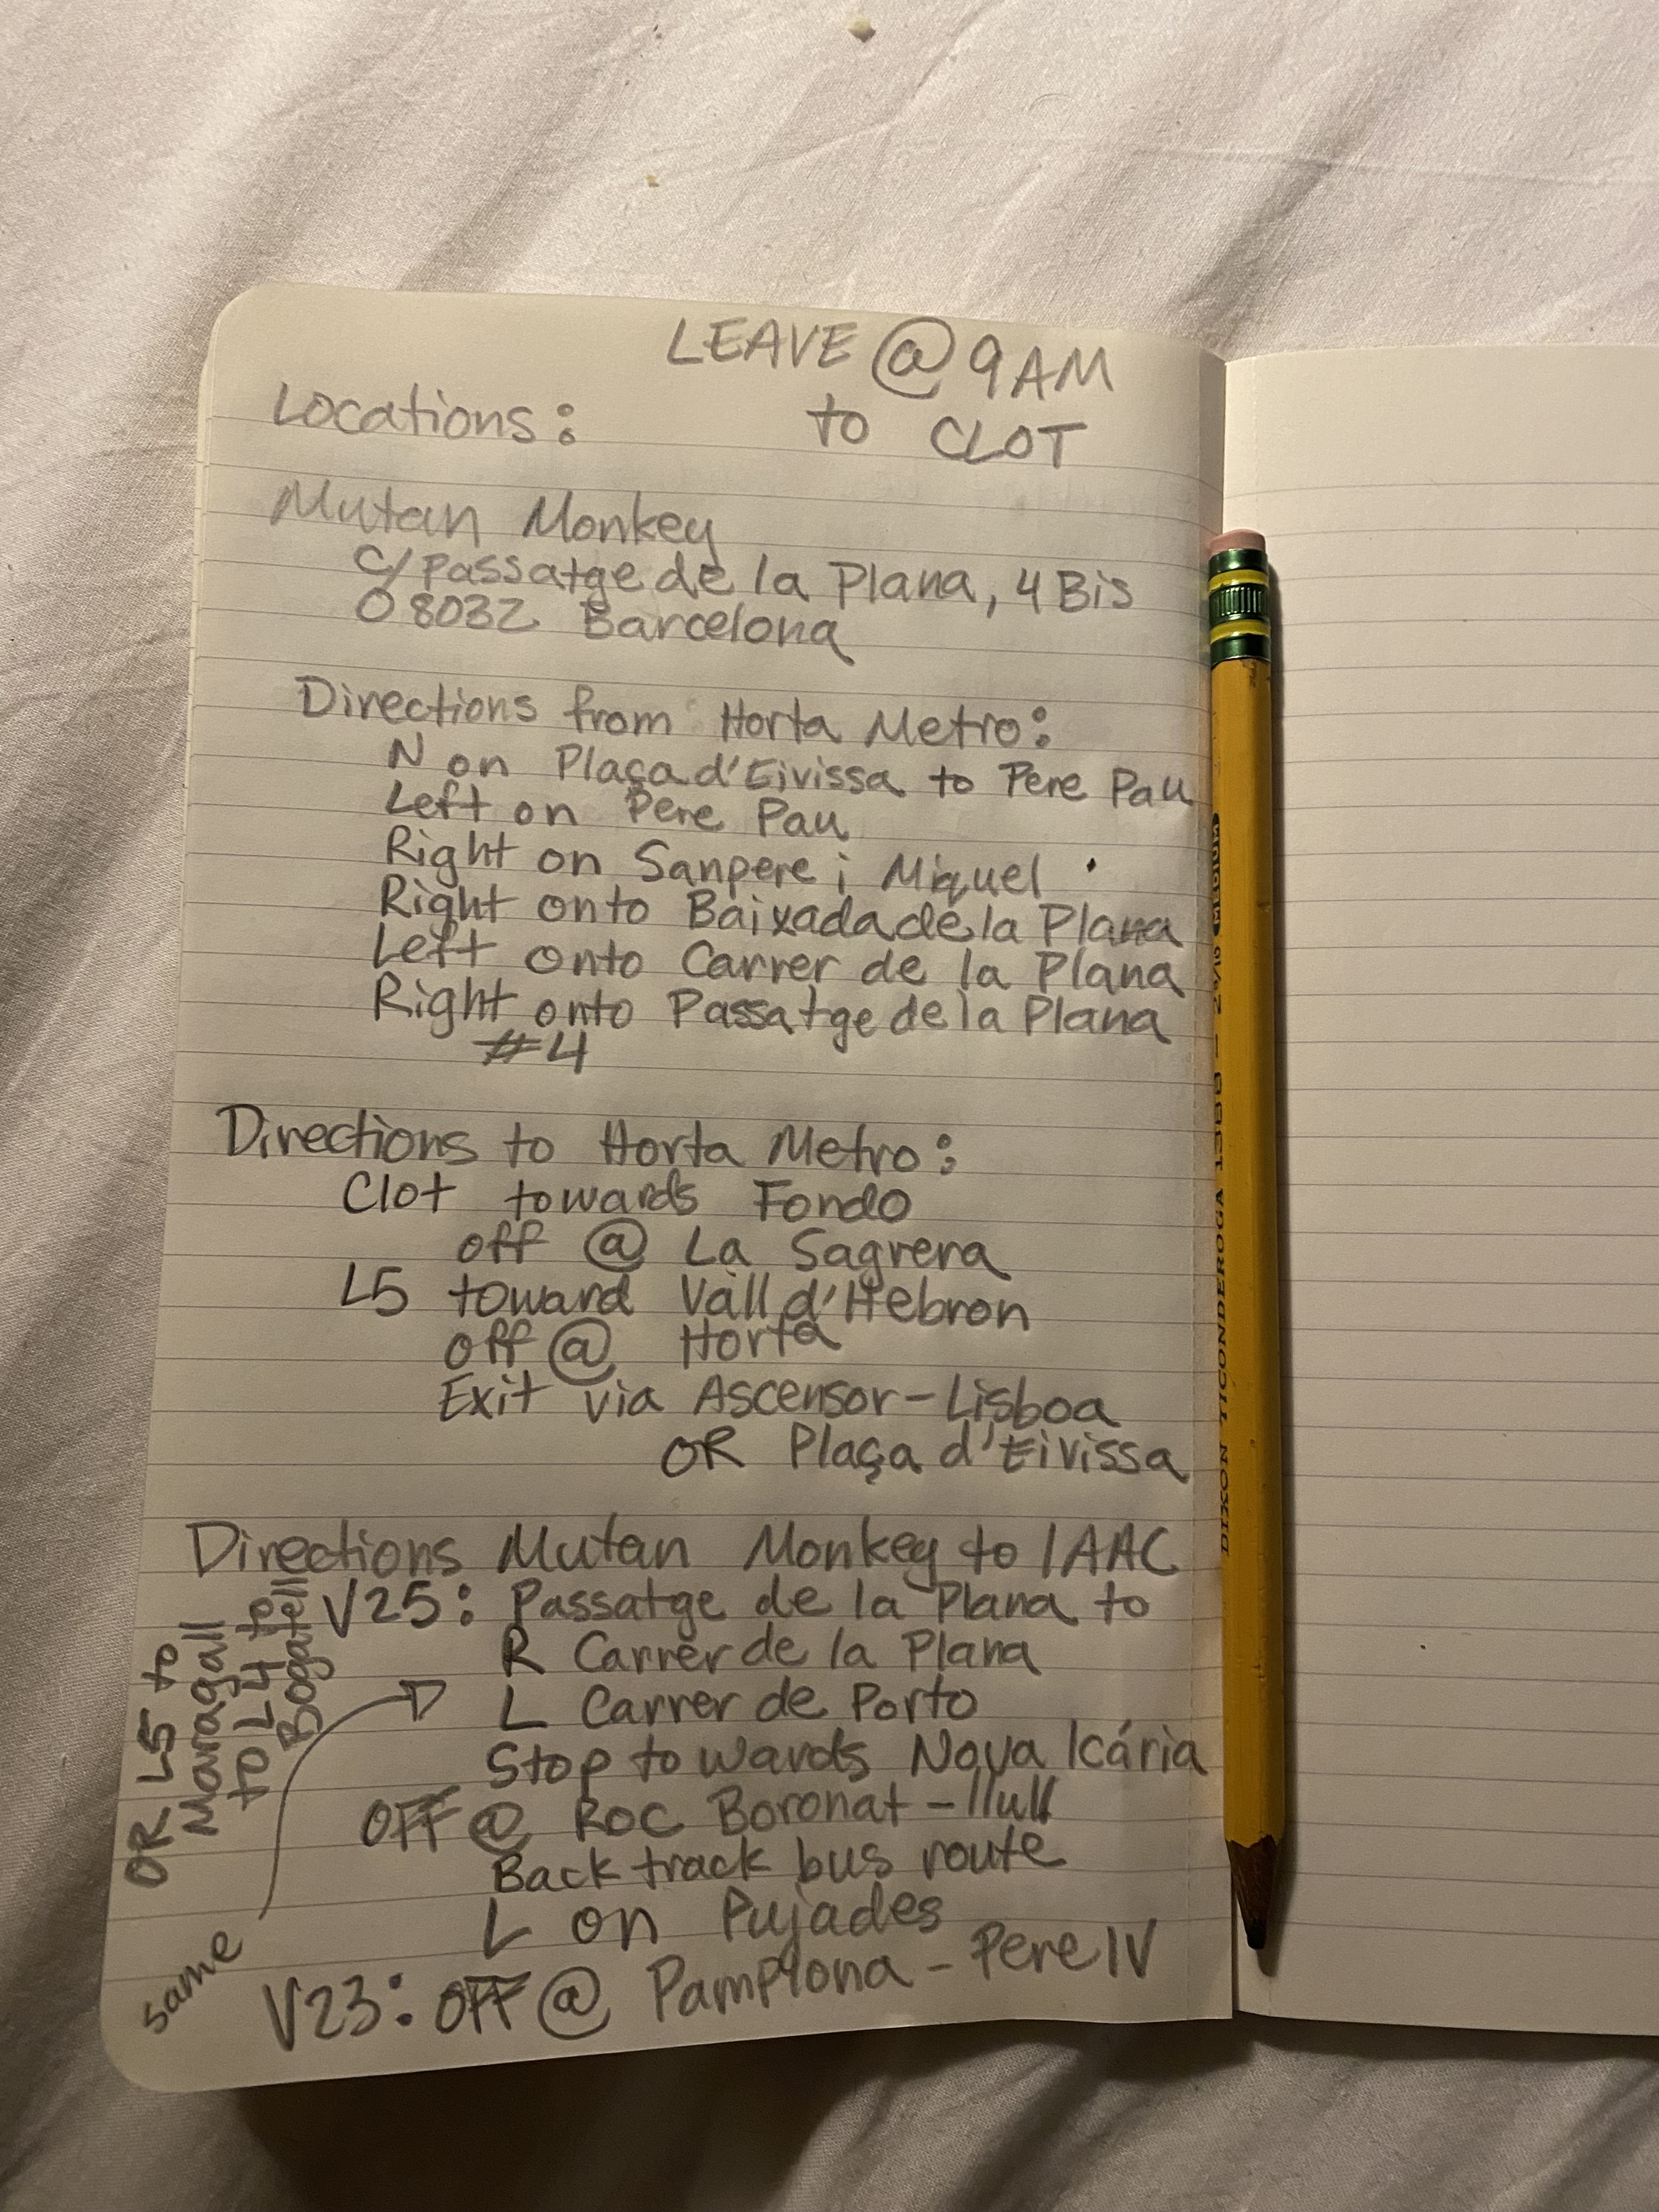 LEAVE @ 9AM
to CLOT
Locations:
Mutan Monkey
C/Passatge de la Plana, 4 Bis
08032 Barcelona
Directions from Horta Metro:
N on Plaça d'Eivissa to Pere Pau
Left on Pere Pau
Right on Sanpere i Miquel
Right onto Baixada de la Plana
Left onto Carrer de la Plana
Right onto Passatge de la Plana
#4
Directions to Horta Metro:
Clot towards Fondo
off @ La Sagrera
L5 toward Vall d'Hebron
off @ Horta
Exit via Ascensor-Lisboa
OR Plaça d'Eivissa
Directions Mutan Monkey to IAAC
V25: Passatge de la Plana to
R Carrer de la Plana
L Carrer de Porto
Stop towards Nova Icária
OFF @ Roc Boronat - llull
Back track bus route
L on Pujades
V23: OFF @ Pamplona - Pere IV
same
OR L5 to
Maragall
to L4 to
Bogatell
DIXON TICONDEROGA 1388 - 2 5/10 MEDIUM